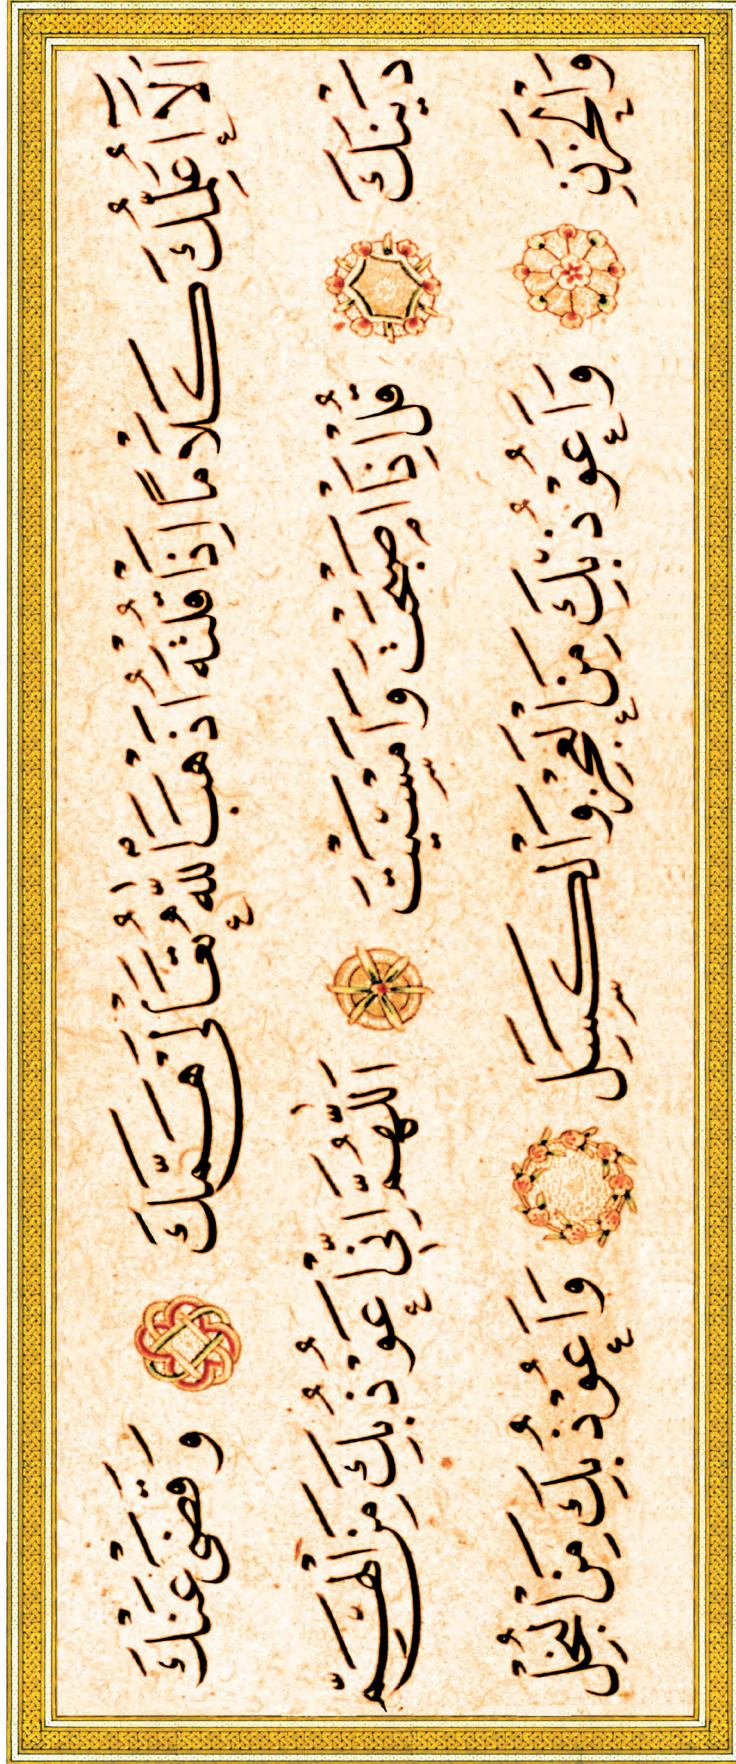 أَلَا أُعَلِّمُكَ كَلَامًا إِذَا قُلْتَهُ أَذْهَبَ اللَّهُ تَعَالَى هَمَّكَ وَقَضَى عَنْكَ
دَيْنَكَ قُلْ إِذَا أَصْبَحْتَ وَأَمْسَيْتَ اللَّهُمَّ إِنِّي أَعُوذُ بِكَ مِنَ الْهَمِّ
وَالْحَزَنِ وَأَعُوذُ بِكَ مِنَ الْعَجْزِ وَالْكَسَلِ وَأَعُوذُ بِكَ مِنَ الْبُخْلِ